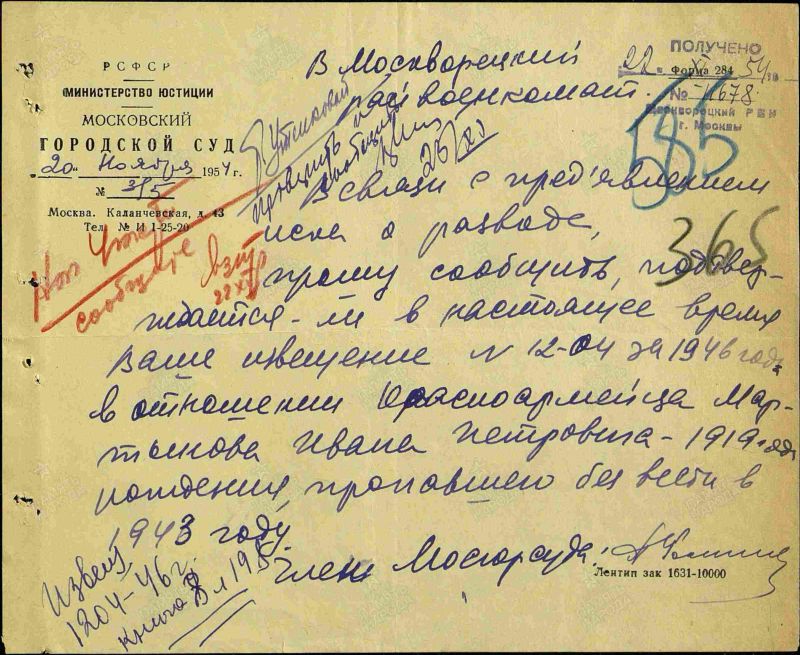 РСФСР
МИНИСТЕРСТВО ЮСТИЦИИ
МОСКОВСКИЙ
ГОРОДСКОЙ СУД
"20" Ноября 1954 г.
№ 3/5
Москва. Каланчевская, д. 43
Тел. № И 1-25-20
ПОЛУЧЕНО
22 XI 54
Форма 284
№ 1678
Москворецкий РВК
г. Москвы
585
365
В Москворецкий
райвоенкомат.
проверить и
сообщить
23/XI
Нач
сообщите
22 XI
В связи с пред'явлением
иска о разводе,
прошу сообщить, подтвер-
ждается-ли в настоящее время
Ваше извещение N 12-04 за 1946 год
в отношении Красноармейца Мар-
тынова Ивана Петровича - 1919 года
рождения, пропавшего без вести в
1943 году.
Член Мосгорсуда
Лентип зак 1631-10000
Извещ
1204-46 г.
книга 8 л 195